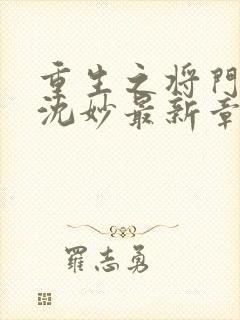 重生之将門
沈妙最新章
羅志勇